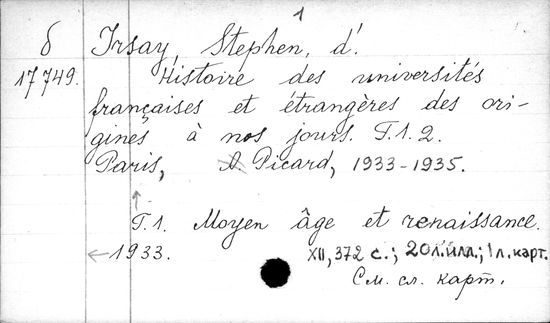 1
б Irsay, Stephen, d'.
17749. Histoire des universités
françaises et étrangères des ori-
gines à nos jours. T.1.2.
Paris, A. Picard, 1933-1935.
T.1. Moyen âge et renaissance.
1933. XII, 372 с.; 20 л. илл.; 1 л. карт.
См. сл. карт.